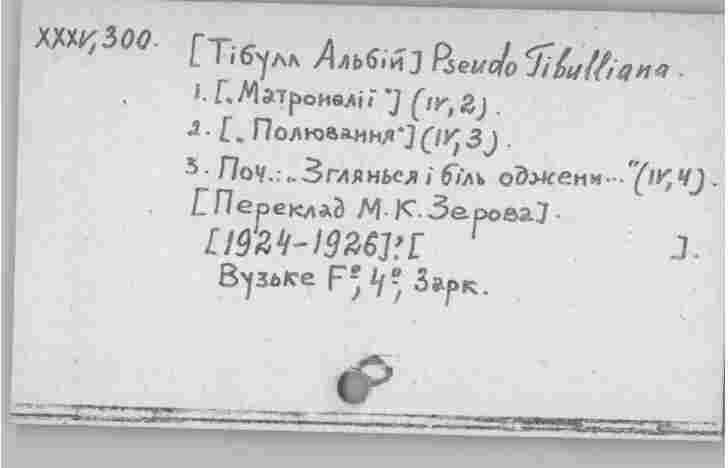 XXXV,300.
[Тібулл Альбій] Pseudo Tibulliana.
1. [„Матроналії"] (IV,2).
2. [„Полювання"] (IV,3).
3. Поч.: „Зглянься і біль оджени..." (IV,4).
[Переклад М.К.Зерова].
[1924-1926]? [ ].
Вузьке Fº, 4º, 3арк.